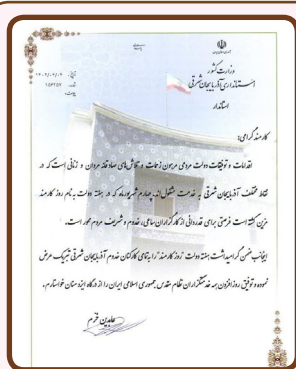 وزارت کشور
استانداری آذربایجان شرقی
استاندار
کارمند گرامی:
اقدامات و توفیقات دولت مردمی مرهون زحمات و تلاش‌های صادقانه مردان و زنانی است که در
نقاط مختلف آذربایجان شرقی به خدمت مشغول‌اند. چهارم شهریورماه که در هفته دولت به نام روز کارمند
مزین گشته است فرصتی برای قدردانی از کارگزاران ساعی، خدوم و شریف مردم محور است.
اینجانب ضمن گرامیداشت هفته دولت "روز کارمند" را به تمامی کارکنان خدوم آذربایجان شرقی تبریک عرض
نموده و توفیق روزافزون همه خدمتگزاران نظام مقدس جمهوری اسلامی ایران را از درگاه ایزد منان خواستارم.
عابدین خرم